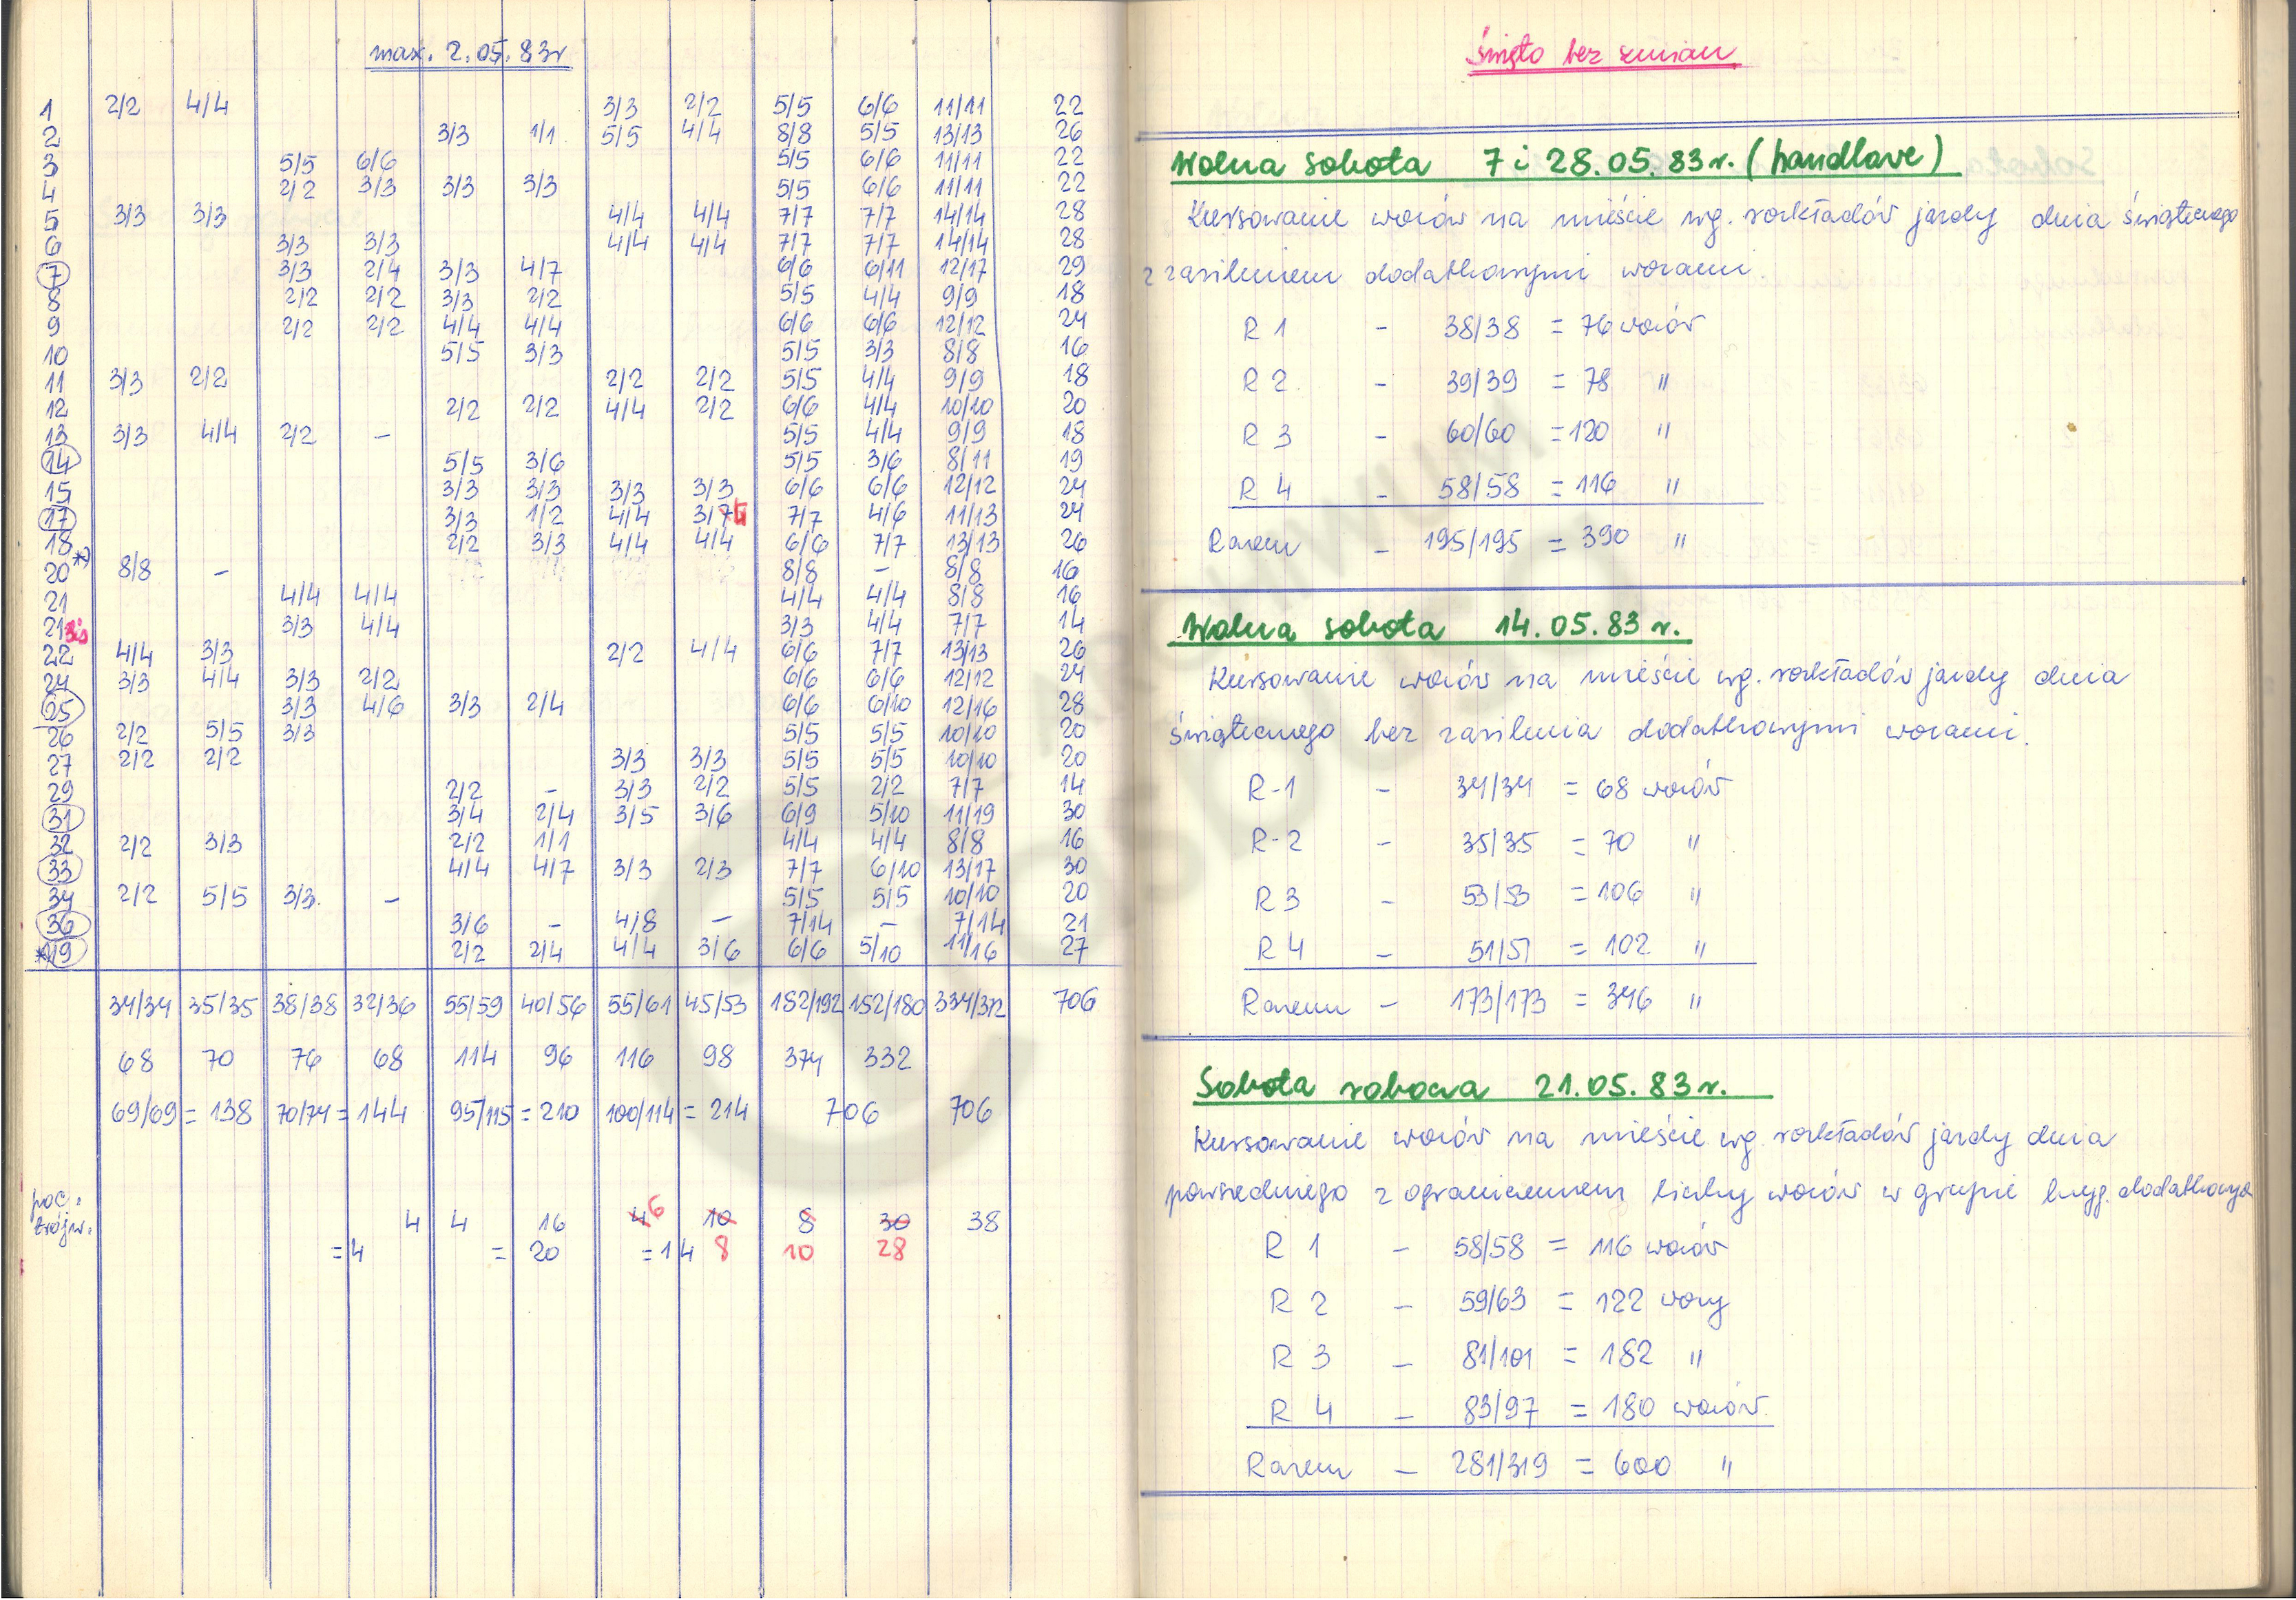 max. 2.05.83r
1 2/2 4/4 3/3 2/2 5/5 6/6 11/11 22
2 3/3 1/1 5/5 4/4 8/8 5/5 13/13 26
3 5/5 6/6 5/5 6/6 11/11 22
4 2/2 3/3 3/3 3/3 5/5 6/6 11/11 22
5 3/3 3/3 4/4 4/4 7/7 7/7 14/14 28
6 3/3 3/3 4/4 4/4 7/7 7/7 14/14 28
7 3/3 2/4 3/3 4/7 6/6 6/11 12/17 29
8 2/2 2/2 3/3 2/2 5/5 4/4 9/9 18
9 2/2 2/2 4/4 4/4 6/6 6/6 12/12 24
10 5/5 3/3 5/5 3/3 8/8 16
11 3/3 2/2 2/2 2/2 5/5 4/4 9/9 18
12 2/2 2/2 4/4 2/2 6/6 4/4 10/10 20
13 3/3 4/4 2/2 – 5/5 4/4 9/9 18
14 5/5 3/6 5/5 3/6 8/11 19
15 3/3 3/3 3/3 3/3 6/6 6/6 12/12 24
17 3/3 1/2 4/4 3/ 7/7 4/6 11/13 24
18 2/2 3/3 4/4 4/4 6/6 7/7 13/13 26
20 *) 8/8 – 8/8 – 8/8 16
21 4/4 4/4 4/4 4/4 8/8 16
21bis 3/3 4/4 3/3 4/4 7/7 14
22 4/4 3/3 2/2 4/4 6/6 7/7 13/13 26
24 3/3 4/4 3/3 2/2 6/6 6/6 12/12 24
25 3/3 4/6 3/3 2/4 6/6 6/10 12/16 28
26 2/2 5/5 3/3 5/5 5/5 10/10 20
27 2/2 2/2 3/3 3/3 5/5 5/5 10/10 20
29 2/2 – 3/3 2/2 5/5 2/2 7/7 14
31 3/4 2/4 3/5 3/6 6/9 5/10 11/19 30
32 2/2 3/3 2/2 1/1 4/4 4/4 8/8 16
33 4/4 4/7 3/3 2/3 7/7 6/10 13/17 30
34 2/2 5/5 3/3. – 5/5 5/5 10/10 20
36 3/6 – 4/8 – 7/14 – 7/14 21
*) 19 2/2 2/4 4/4 3/6 6/6 5/10 11/16 27
34/34 35/35 38/38 32/36 55/59 40/56 55/61 45/53 182/192 152/180 334/372 706
68 70 76 68 114 96 116 98 374 332
69/69 = 138 70/74 = 144 95/115 = 210 100/114 = 214 706 706
poc.
trójw. 4 4 16 4 6 10 8 30 38
= 4 = 20 = 14 8 10 28
Święto bez zmian
Wolna sobota 7 i 28.05.83r. (handlowe)
Kursowanie wozów na mieście wg. rozkładów jazdy dnia świątecznego
z zasileniem dodatkowymi wozami.
R 1 – 38/38 = 76 wozów
R 2 – 39/39 = 78 "
R 3 – 60/60 = 120 "
R 4 – 58/58 = 116 "
Razem – 195/195 = 390 "
Wolna sobota 14.05.83r.
Kursowanie wozów na mieście wg. rozkładów jazdy dnia
świątecznego bez zasilenia dodatkowymi wozami.
R-1 – 34/34 = 68 wozów
R-2 – 35/35 = 70 "
R 3 – 53/53 = 106 "
R 4 – 51/51 = 102 "
Razem – 173/173 = 346 "
Sobota robocza 21.05.83r.
Kursowanie wozów na mieście wg. rozkładów jazdy dnia
powszedniego z ograniczeniem liczby wozów w grupie bryg. dodatkowych
R 1 – 58/58 = 116 wozów
R 2 – 59/63 = 122 wozy
R 3 – 81/101 = 182 "
R 4 – 83/97 = 180 wozów
Razem – 281/319 = 600 "